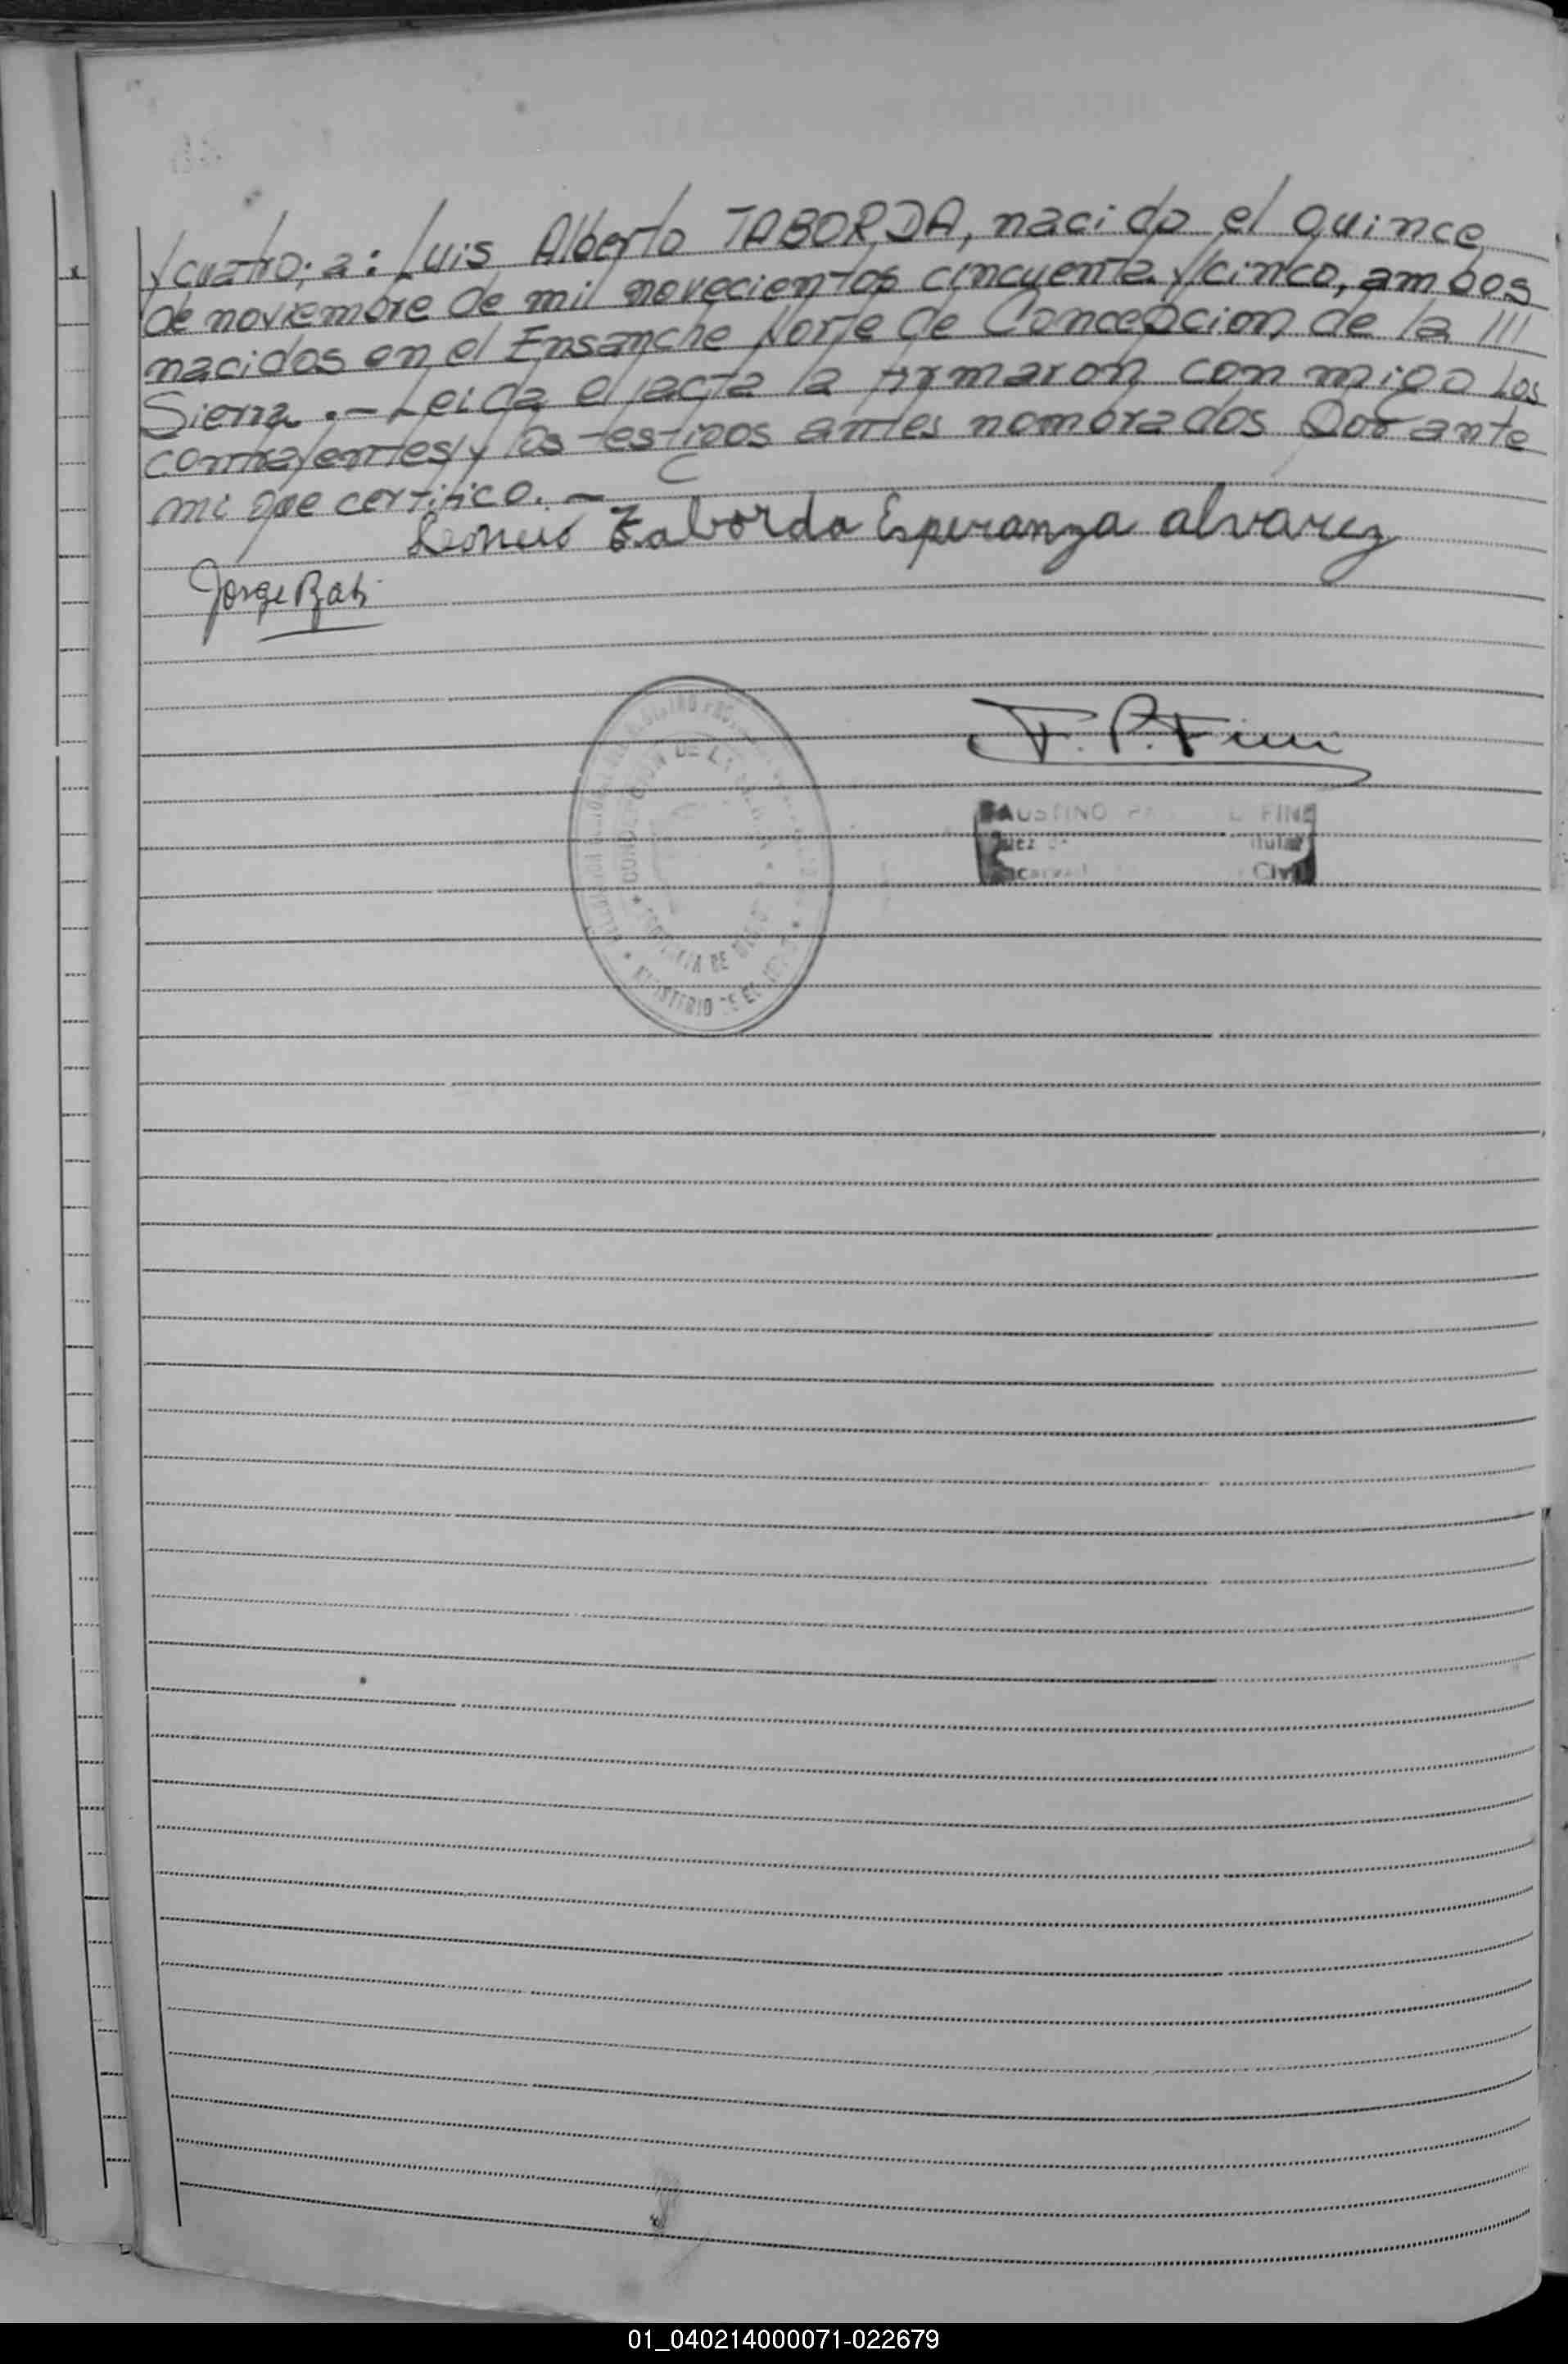 y cuatro; a: Luis Alberto TABORDA, nacido el quince
de noviembre de mil novecientos cincuenta y cinco, ambos
nacidos en el Ensanche Norte de Concepcion de la
Sierra.- Leida el acta la firmaron conmigo los
contrayentes y los testigos antes nombrados Por ante
mi que certifico.-
Taborda Esperanza alvarez
Jorge
F. P. Fini
FAUSTINO FINI
Juez
Civil
DE LA
MINISTERIO DE
01_040214000071-022679